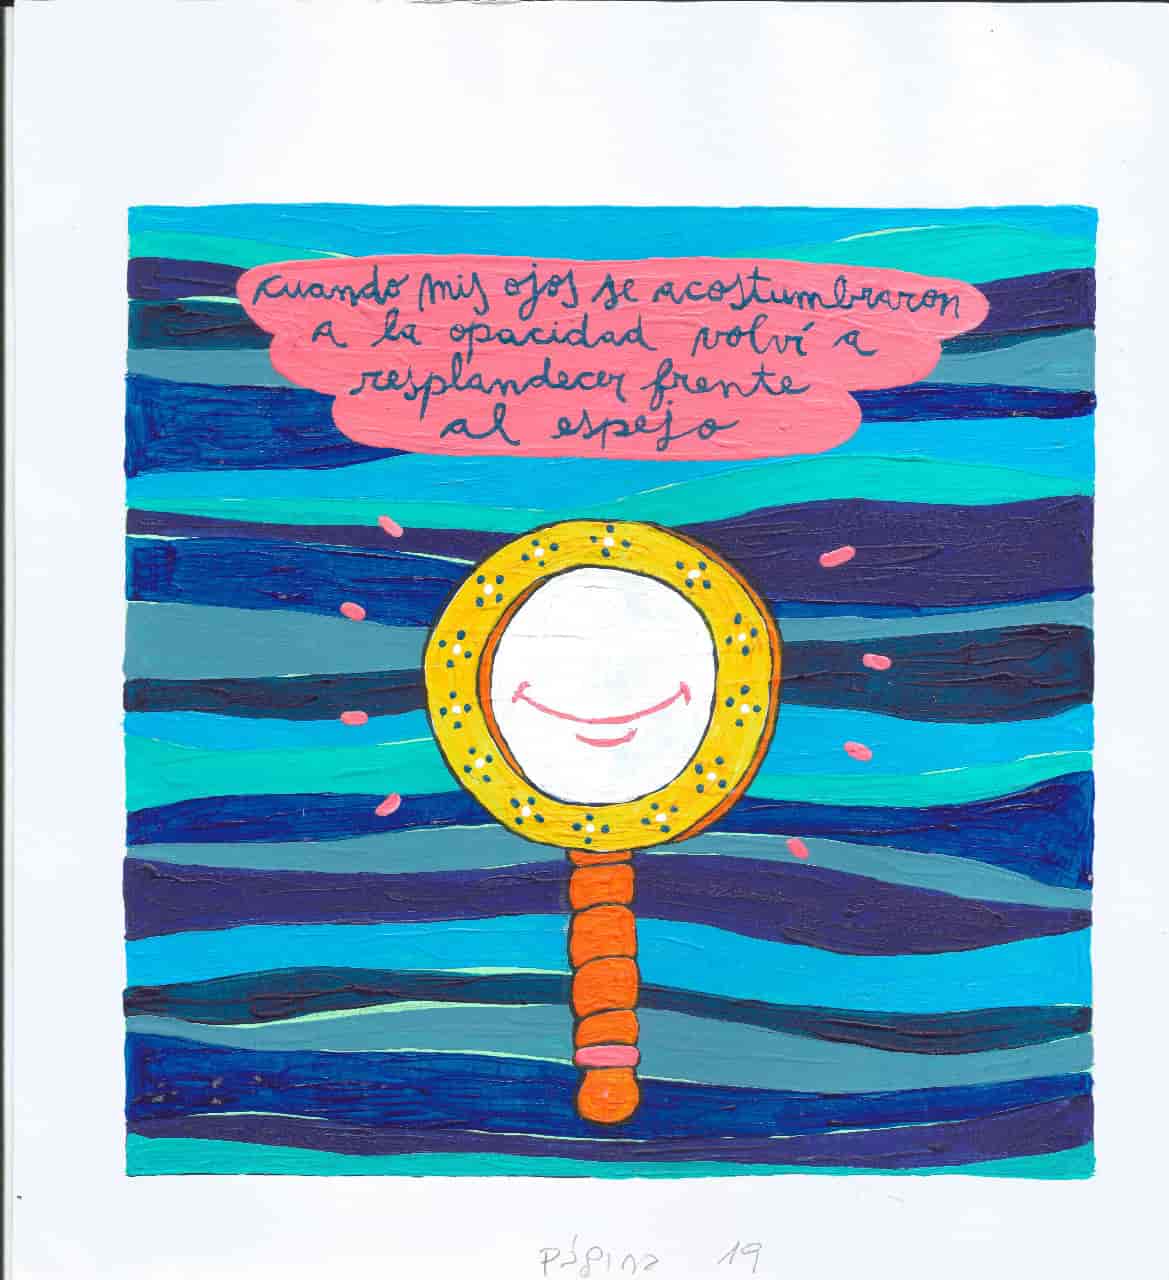 cuando mis ojos se acostumbraron
a la opacidad volví a
resplandecer frente
al espejo
página 19